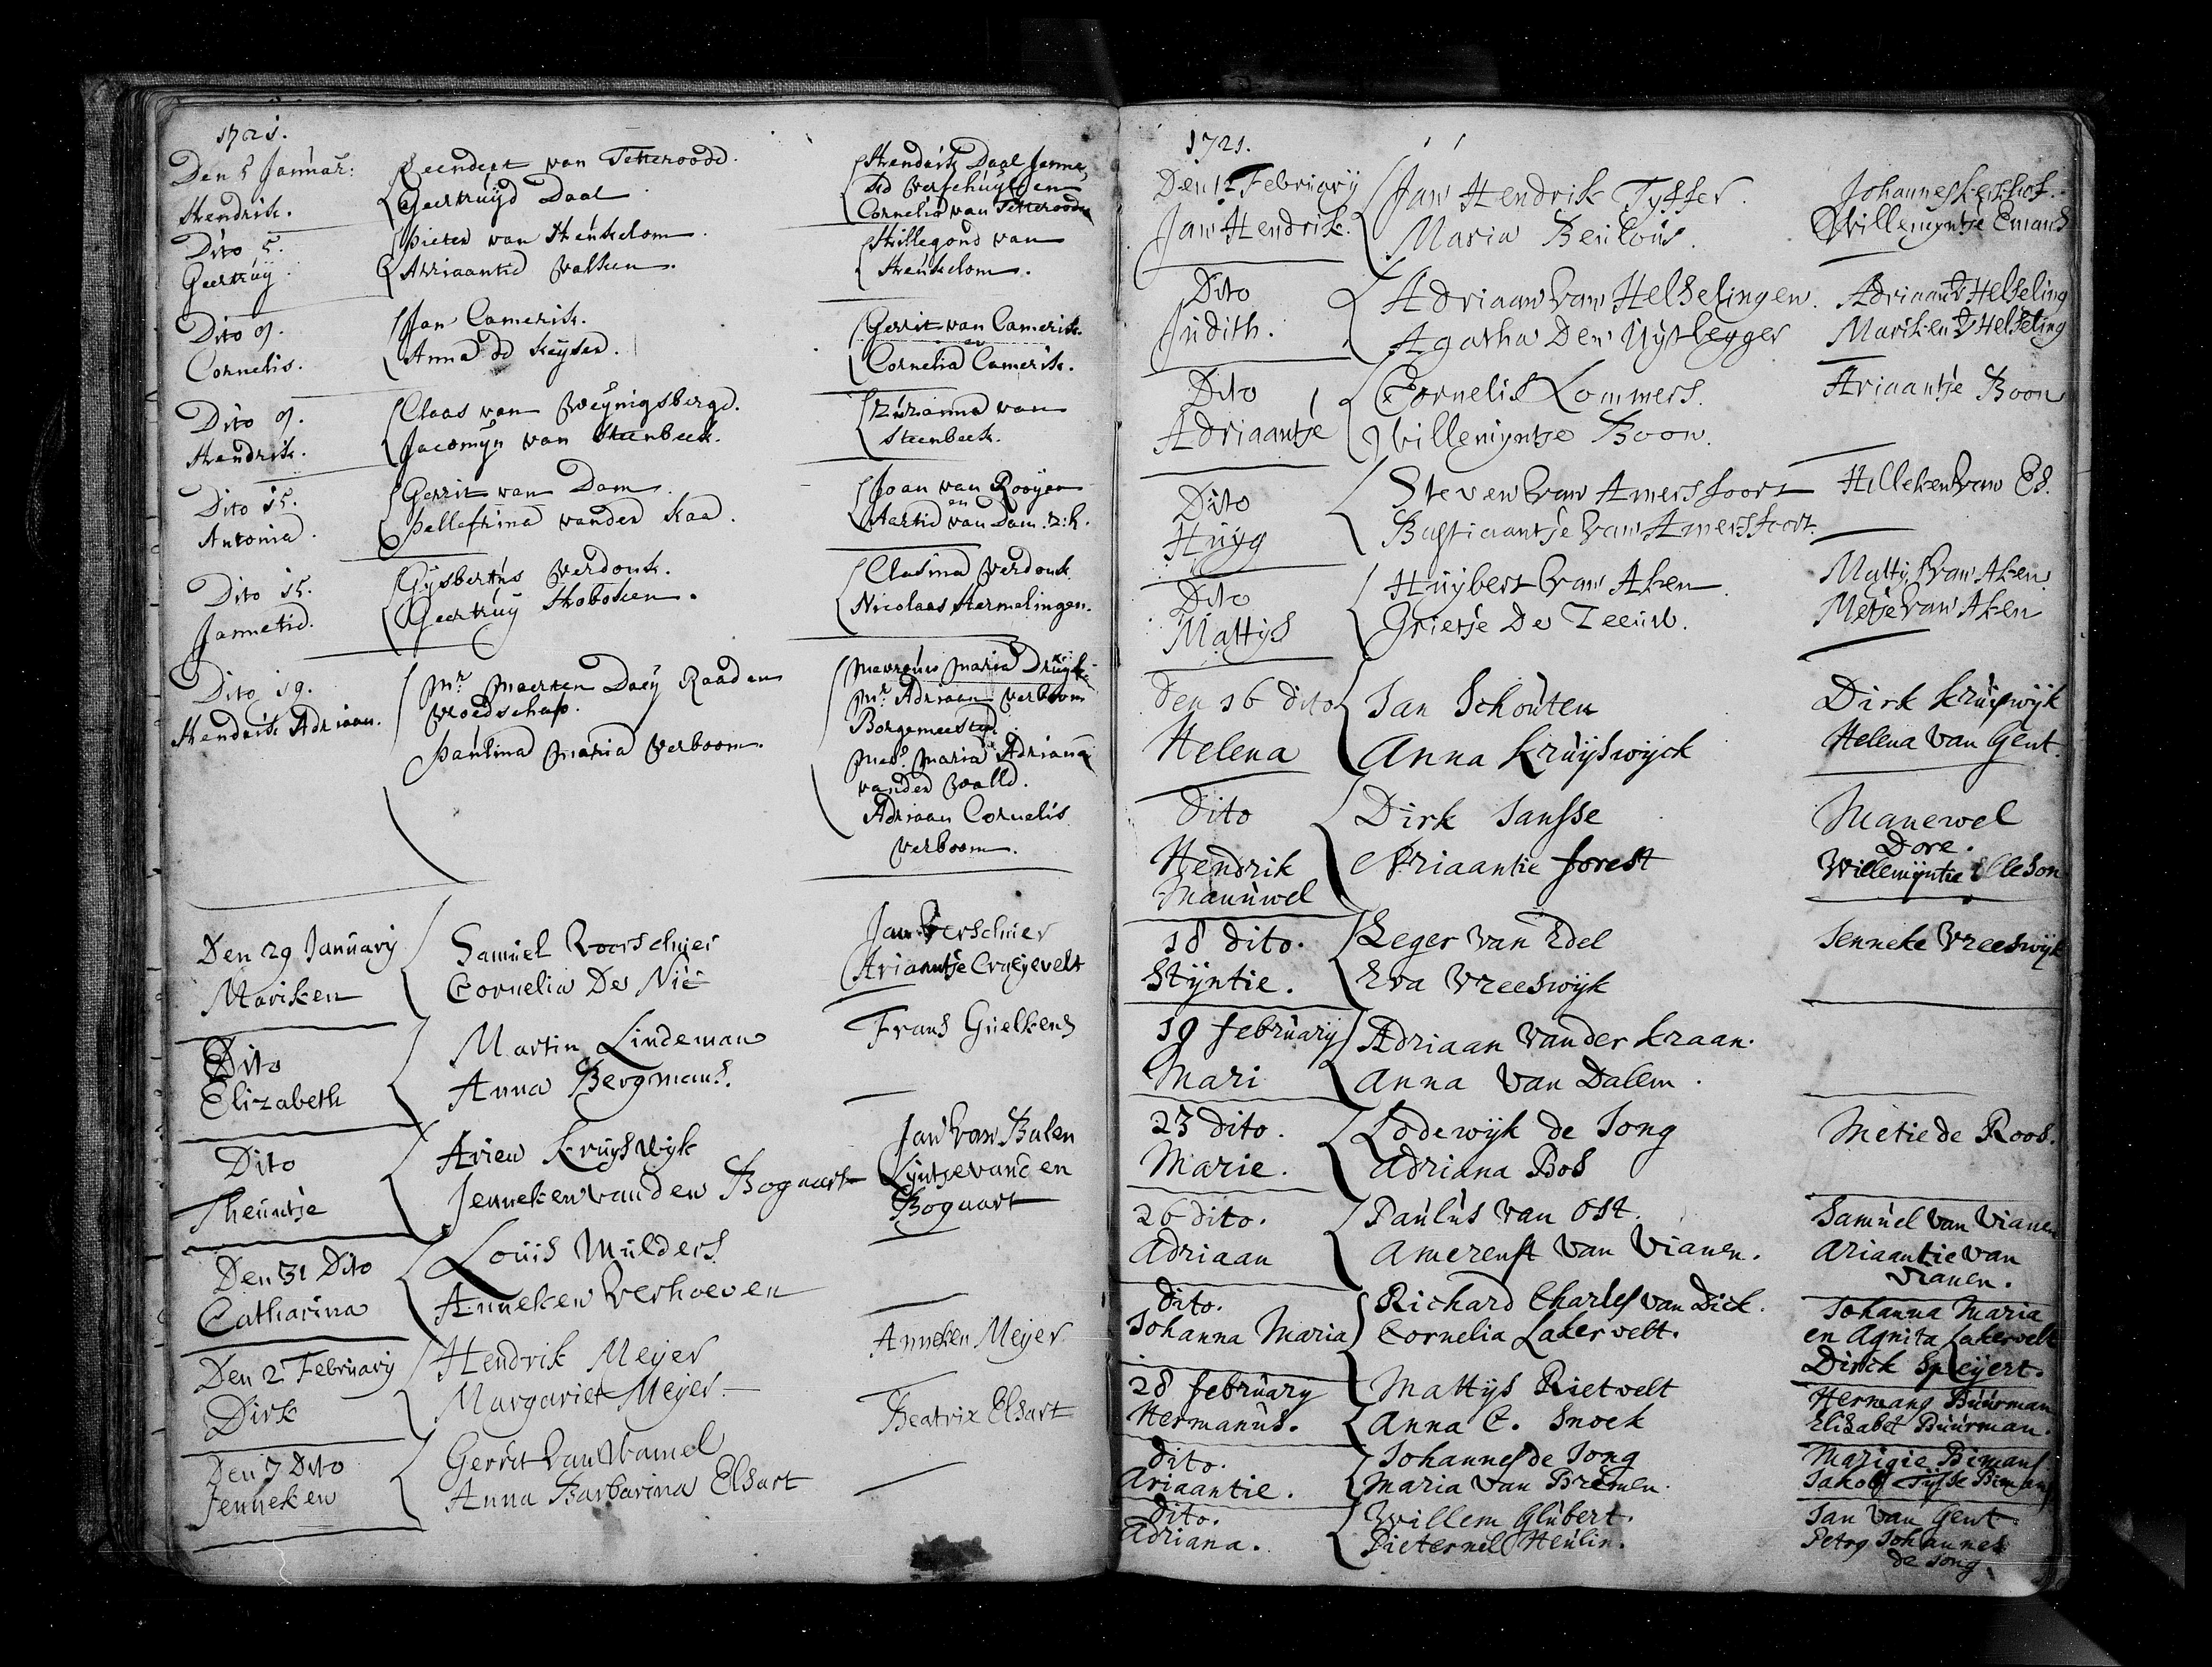 1721.
Den 5 Januar: Leendert van Tetteroode. Hendrik Daal Janne,
Hendrik. Geertruyd Daal tie Verschuyl en
Cornelia van Tetteroode
Dito 5. Pieter van Heukelom. Hillegond van
Geertruy. Arriaantie Valken. Heukelom.
Dito 9. Jan Camerik. Gerrit van Camerik.
en
Cornelis. Anna de Keyser. Cornelia Camerik.
Dito 9. Claas van Weynigsberge. Zuzanna van
Hendrik. Jacomyn van Steenbeek. Steenbeek.
Dito 15. Gerrit van Dam. Joan van Rooyen
en
Antonia. Pellegrina vander Kaa. Aartie van Dam. z: h.
Dito 15. Gysbertus Verdonk. Clasina Verdonk
Jannetie. Geertruy Hoboken. Nicolaas Hermelingen.
Dito 19. Mr Maerten Daey Raad en Mevrouw Maria
Hendrik Adriaan. Vroedschap. Mr Adriaan Verboom
Borgemeester.
Paulina Maria Verboom. Mej. Maria Adriana
vander Walle.
Adriaan Cornelis
Verboom.
Den 29 January Samuel Voorschyer Jan Verschuer
Mariken Cornelia De Nie Ariaantje Craeyevelt
Dito Martin Lindeman Frans Guelkens
Elizabeth Anna Bergmans.
Dito Arien Kruyswyk Jan van Balen
Theuntje Jenneken vanden Bogaart Lyntje vanden
Bogaart
Den 31 Dito Louis Mulders
Catharina Anneken Verhoeven
Den 2 February Hendrik Meyer Anneken Meyer
Dirk Margariet Meyer
Den 7 Dito Gerrit van Wamel Beatrix Elsart
Jenneken Anna Barbarina Elsart
1721.
Den 12 February Jan Hendrik Tyffer. Johannes Kerkhof.
Jan Hendrik. Maria Beukous. Willemyntje Emans
Dito Adriaan van Helselingen. Adriaan V Helseling
Judith. Agatha Den Uytlegger Mariken V Helseling
Dito Cornelis Lommers. Ariaantje Boon
Adriaantje Willemyntje Boon.
Dito Steven van Amersfoort Hilleken van Es.
Huyg Bastiaantje van Amersfoort.
Dito Huybert van Aken Mattys van Aken
Mattys Grietje De Leeuw. Metje van Aken
Den 16 dito Jan Schouten Dirk Kruyswyk
Helena Anna Kruyswyck Helena van Gent.
Dito Dirk Jansse Manewel
Dore.
Hendrik Ariaantie forest Willemyntie Elleson
Manuwel
18 dito. Leger van Edel Jenneke Vreeswyk
Styntie. Eva Vreeswyk
19 february Adriaan vander Kraan.
Mari Anna van Dalem.
23 dito. Lodewyk de Jong Metie de Roos.
Marie. Adriana Bos
26 dito. Paulus van Ost. Samuel van Vianen
Adriaan Amerenst van Vianen. Ariaantie van
Vianen.
dito. Richard Charles van Dick. Johanna Maria
Johanna Maria Cornelia Lakervelt. en Agnita Lakervelt
Dirck Spleyert.
28 february Mattys Rietvelt Hermans Buurman
Hermanus. Anna C. Snoek Elisabet Buurman.
dito. Johannes de Jong Marigie Bimans
Ariaantie. Maria van Bremen. Jakob Tysse Bimans
dito. Willem Glubert. Jan van Gent.
Adriana. Pieternel Heulin. Petrq Johannes
de Jong